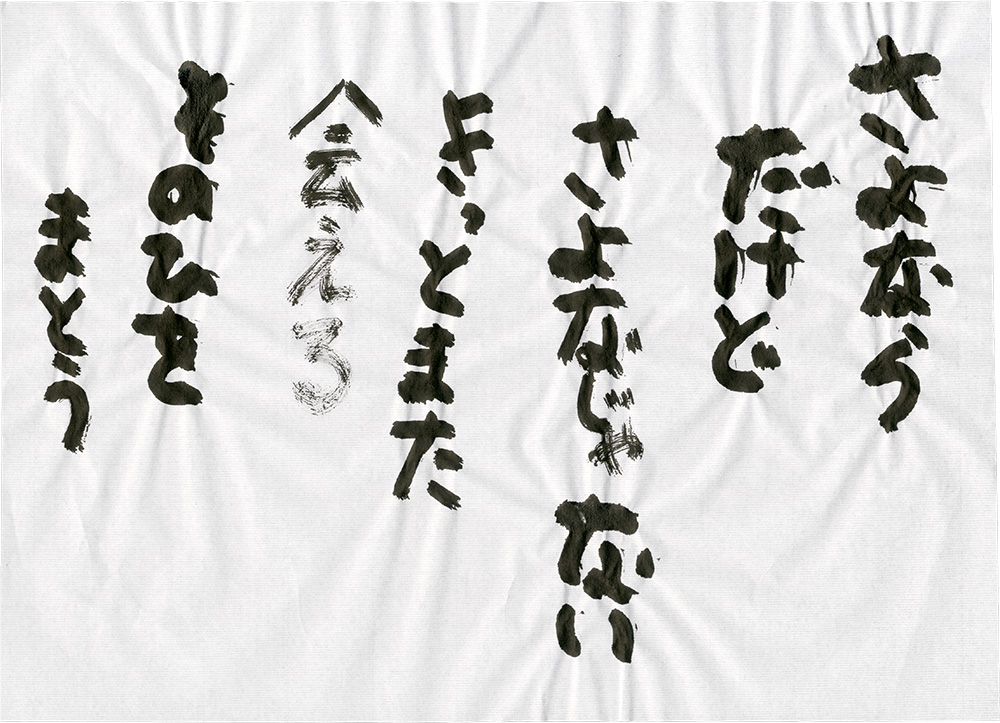 さよなら
だけど
さよなじゃない
きっとまた
会える
そのひを
まとう